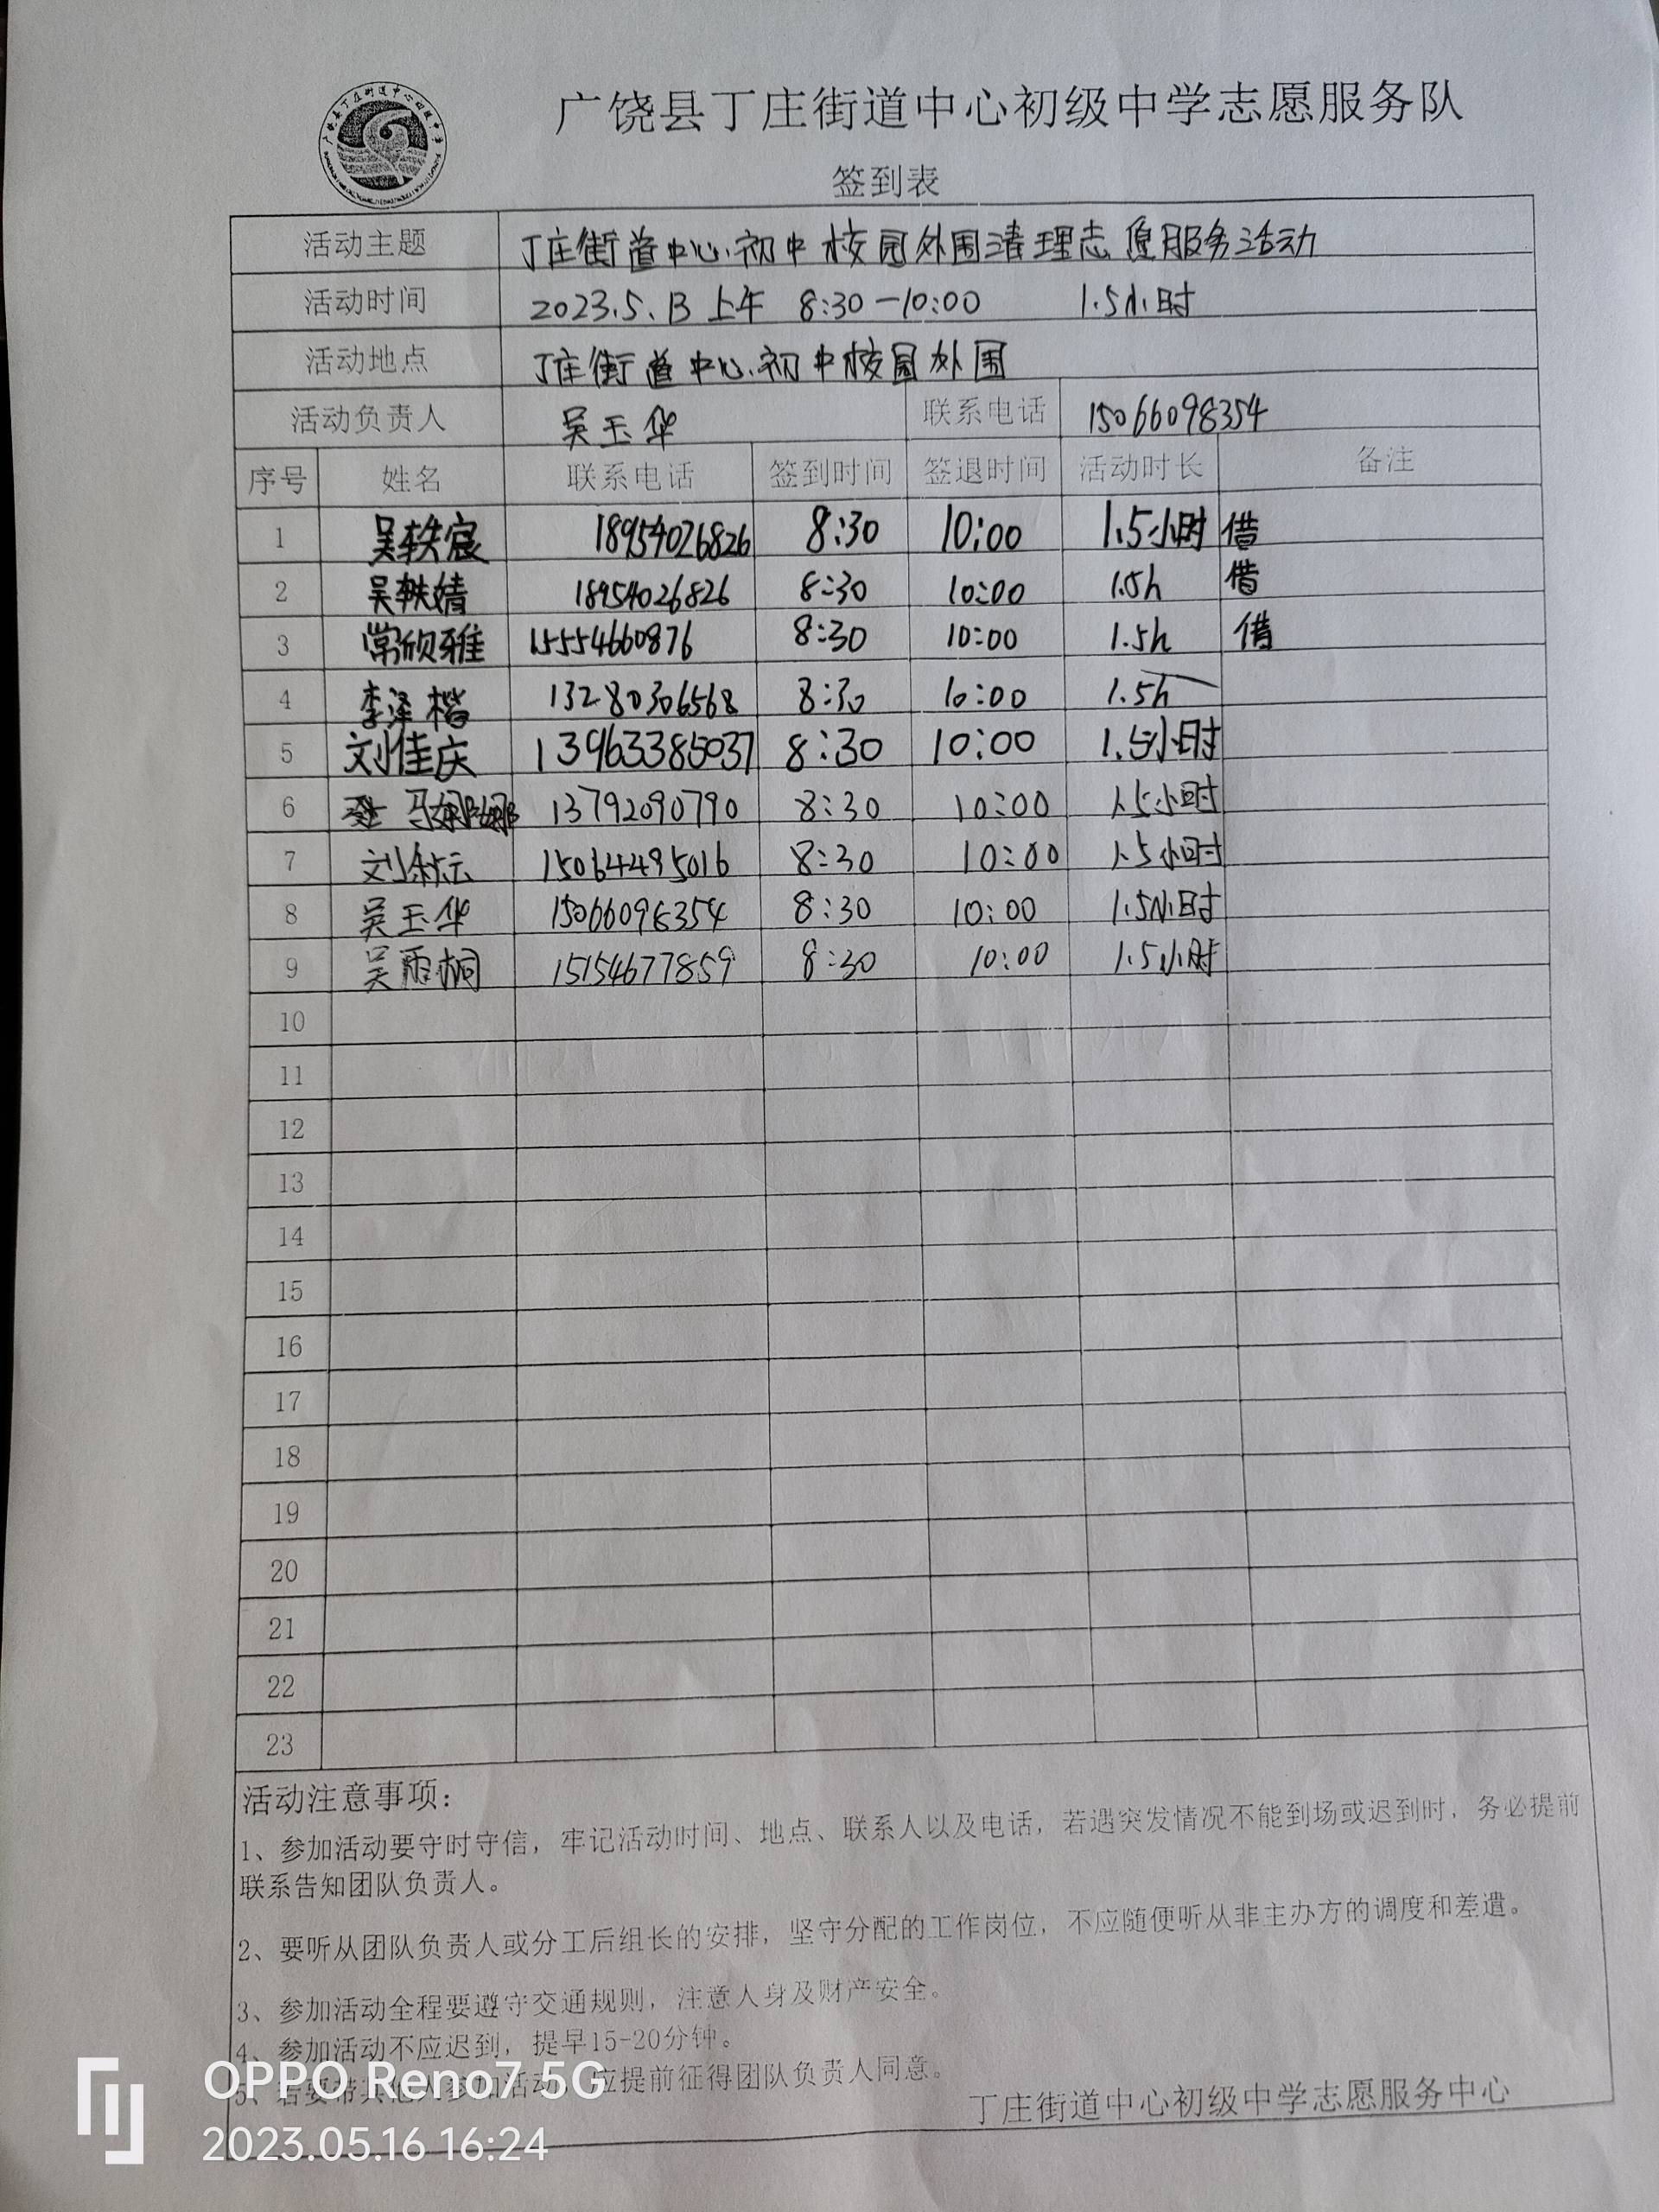 广饶县丁庄街道中心初级中学志愿服务队
签到表
活动主题 丁庄街道中心初中校园外围清理志愿服务活动
活动时间 2023.5.13 上午 8:30-10:00 1.5小时
活动地点 丁庄街道中心初中校园外围
活动负责人 吴玉华 联系电话 15066098354
序号 姓名 联系电话 签到时间 签退时间 活动时长 备注
1 吴轶宸 18954026826 8:30 10:00 1.5小时 借
2 吴轶婧 18954026826 8:30 10:00 1.5h 借
3 常欣雅 15554660876 8:30 10:00 1.5h 借
4 李泽楷 13280306568 8:30 10:00 1.5h
5 刘佳庆 13963385037 8:30 10:00 1.5小时
6 马娜娜 13792090790 8:30 10:00 1.5小时
7 刘秋云 15064495016 8:30 10:00 1.5小时
8 吴玉华 15066098354 8:30 10:00 1.5小时
9 吴雨桐 15154677859 8:30 10:00 1.5小时
10
11
12
13
14
15
16
17
18
19
20
21
22
23
活动注意事项:
1、参加活动要守时守信，牢记活动时间、地点、联系人以及电话，若遇突发情况不能到场或迟到时，务必提前
联系告知团队负责人。
2、要听从团队负责人或分工后组长的安排，坚守分配的工作岗位，不应随便听从非主办方的调度和差遣。
3、参加活动全程要遵守交通规则，注意人身及财产安全。
4、参加活动不应迟到，提早15-20分钟。
5、若要带其他人参加活动，应提前征得团队负责人同意。
丁庄街道中心初级中学志愿服务中心
OPPO Reno7 5G
2023.05.16 16:24